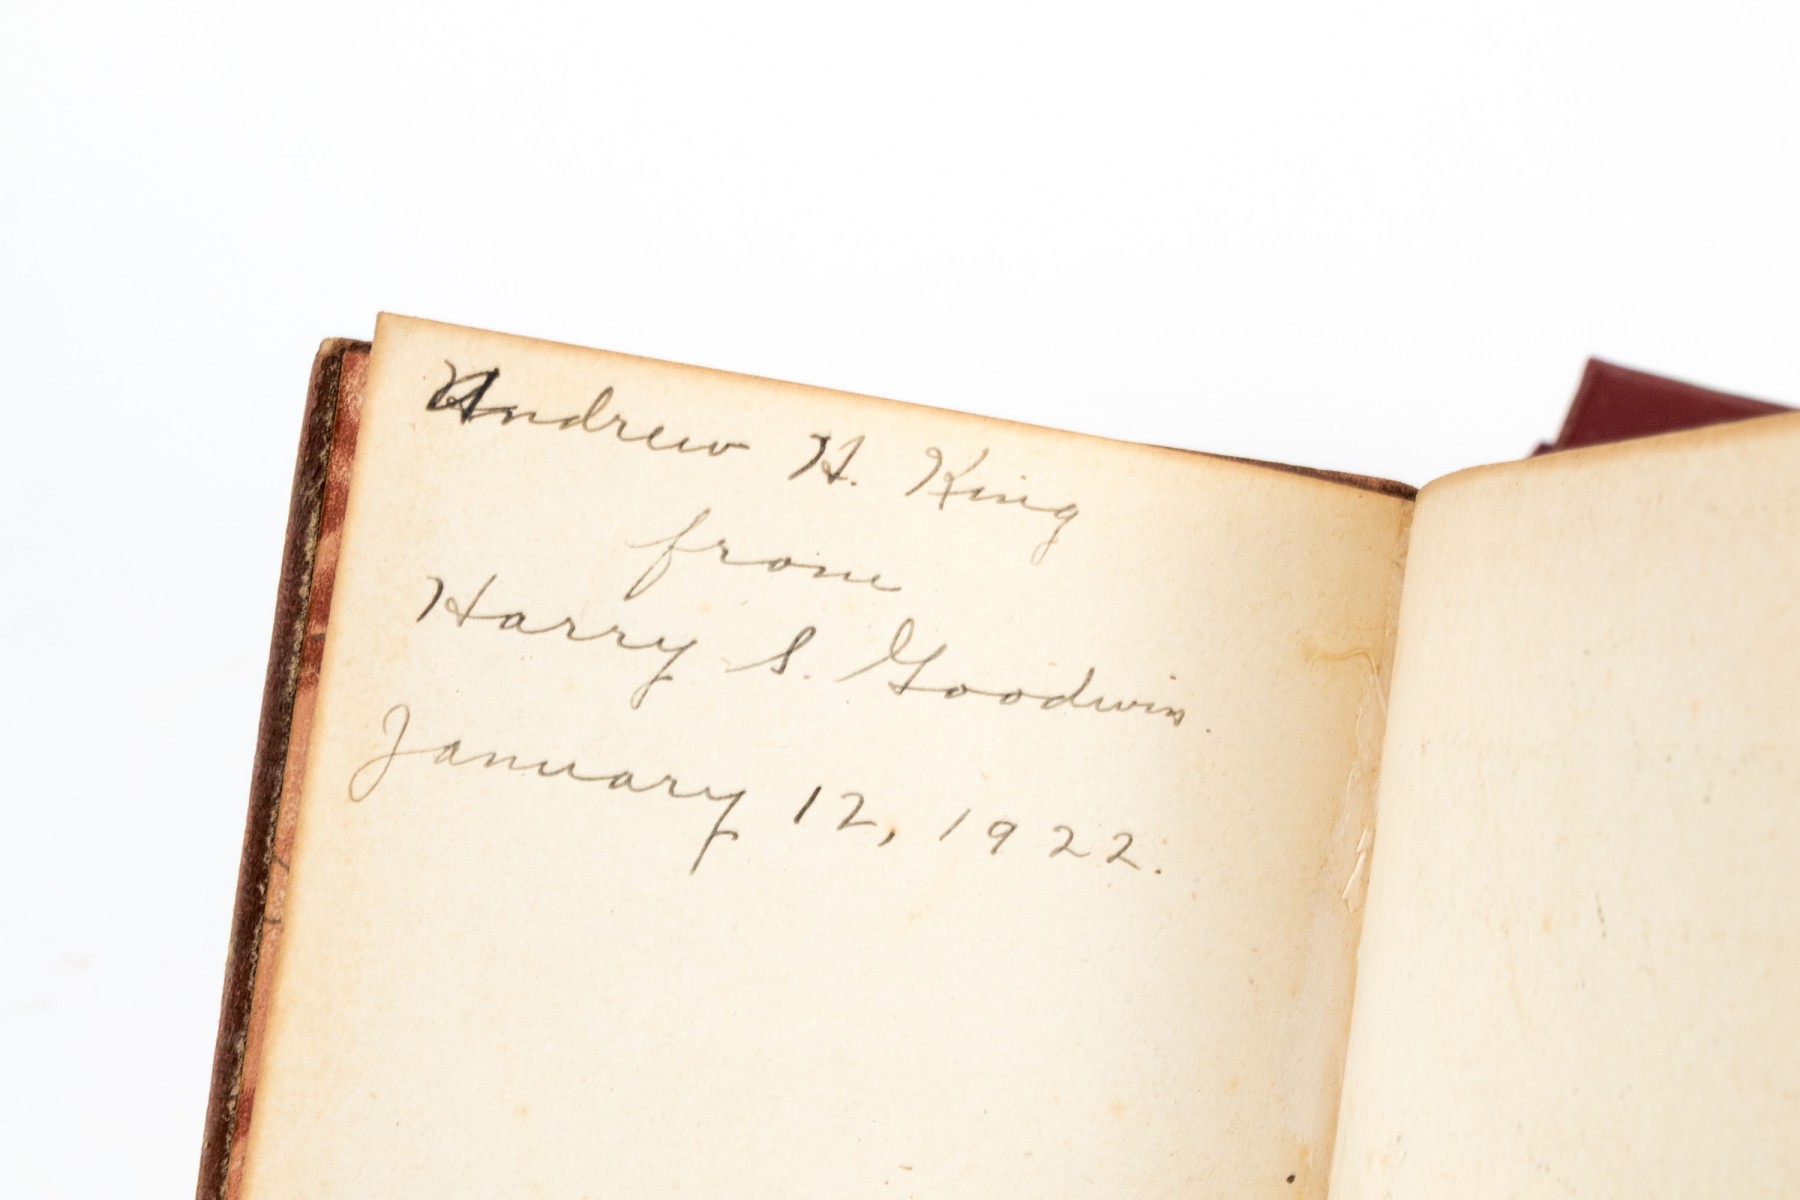 Andrew H. King
from
Harry S. Goodwin.
January 12, 1922.